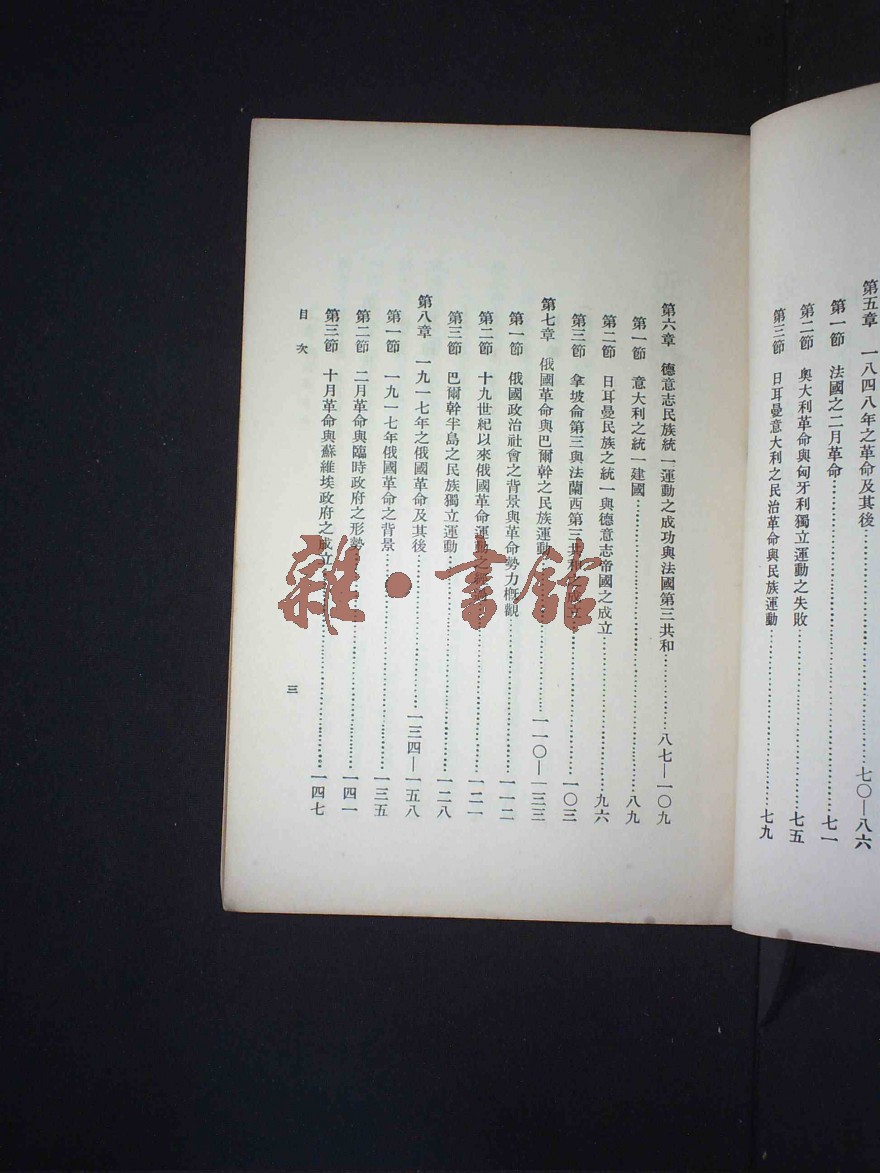 第五章　一八四八年之革命及其後……七〇—八六
第一節　法國之二月革命……七一
第二節　奧大利革命與匈牙利獨立運動之失敗……七五
第三節　日耳曼意大利之民治革命與民族運動……七九
第六章　德意志民族統一運動之成功與法國第三共和……八七—一〇九
第一節　意大利之統一建國……八九
第二節　日耳曼民族之統一與德意志帝國之成立……九六
第三節　拿坡侖第三與法蘭西第三共和之成立……一〇三
第七章　俄國革命與巴爾幹之民族運動……一一〇—一三三
第一節　俄國政治社會之背景與革命勢力概觀……一一二
第二節　十九世紀以來俄國革命運動之……一二一
第三節　巴爾幹半島之民族獨立運動……一二八
第八章　一九一七年之俄國革命及其後……一三四—一五八
第一節　一九一七年俄國革命之背景……一三五
第二節　二月革命與臨時政府之形勢……一四一
第三節　十月革命與蘇維埃政府之成立……一四七
目次
三
雜·書館